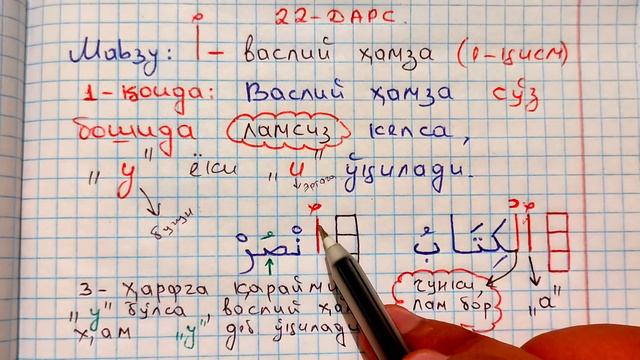 22-ДАРС.
Мавзу: ٱ - васлий ҳамза (1-қисм)
1-қоида: Васлий ҳамза сўз
бошида ламсиз келса,
"у" ёки "и" ўқилади.
бугун эртага
ٱنْصُرْ ٱلْكِتَابُ
3-ҳарфга қарайми
"у" бўлса, васлий
ҳам "у" деб ўқилади
чунки,
лам бор "а"